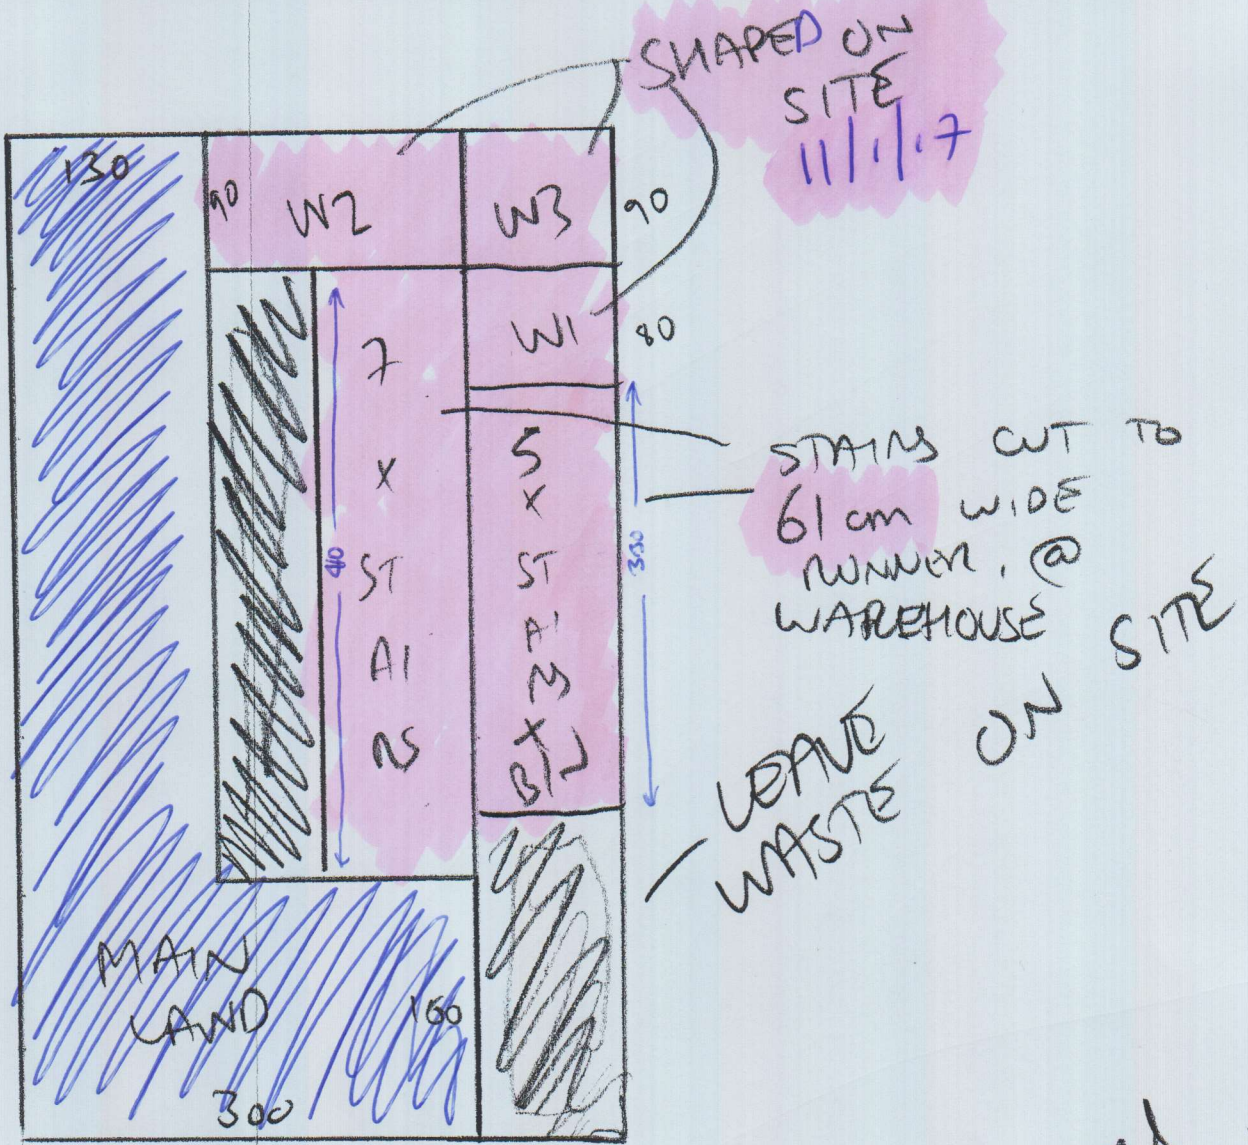 SHAPED ON
SITE
11/1/17
130
90
W2
W3
90
W1
80
7
X
ST
AI
RS
5
X
ST
AI
RS
X
B/L
410
330
STAIRS CUT TO
61 cm WIDE
RUNNER, @
WAREHOUSE
LEAVE
WASTE ON SITE
MAIN
LAND
160
300